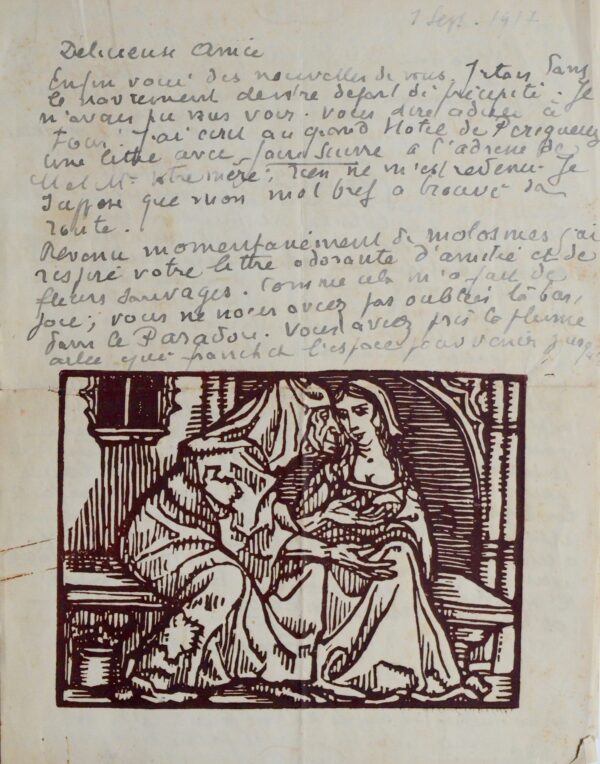 1 Sept. 1917
Délicieuse Amie
Enfin voici des nouvelles de vous. J'étais dans
le navrement de votre départ si précipité. Je
n'avais pu vous voir. vous dire adieu à
Tous! J'ai écrit au grand Hotel de Perigueux
une lettre avec faire suivre à l'adresse de
M et Me votre mère; rien ne m'est revenu. Je
suppose que mon mot bref a trouvé sa
route.
Revenu momentanément de molosmes j'ai
respiré votre lettre odorante d'amitié et de
fleurs sauvages. Comme cela m'a fait de
joie; vous ne nous aviez pas oubliés là bas,
dans le Paradou. Vous aviez pris la plume
ailée qui franchit l'espace pour venir